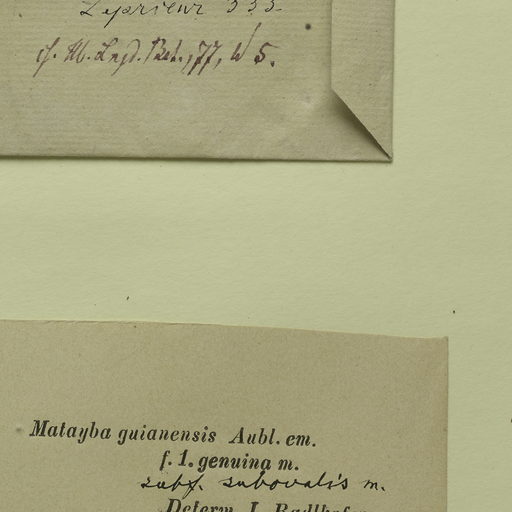 Leprieur 333
cf. Hb. Lugd. Bat., 77, W 5.
Matayba guianensis Aubl. em.
f. 1. genuina m.
subf. subovalis m.
Determ. L. Radlkofer